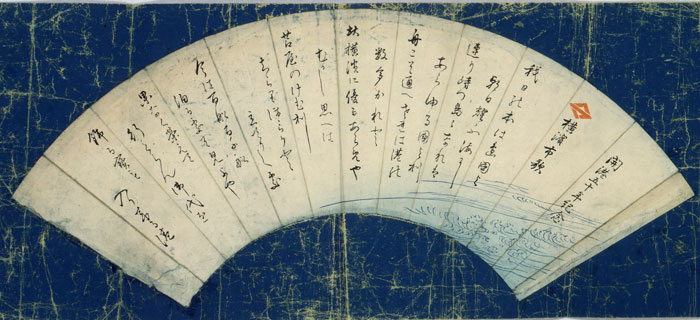 開港五十年紀念
横濱市歌
我日の本は島國よ
朝日耀ふ海に
連り峙つ島々なれば
あらゆる國より
舟こそ通へされば港の
数多かれど
此横濱に優るあらめや
むかし思へば
苫屋のけむり
ちらりほらりと
立てりし處
今は百舟百千舟
泊る處ぞ見よや
果なく榮えて
行くらん御代を
飾る寶も
入り来る港